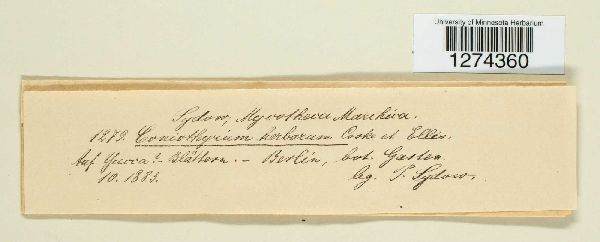 University of Minnesota Herbarium
1274360
Sydow, Mycotheca Marchica.
1273. Coniothyrium herbarum Cooke et Ellis.
Auf Yucca-Blättern. - Berlin, bot. Garten
10. 1885. leg. P. Sydow.